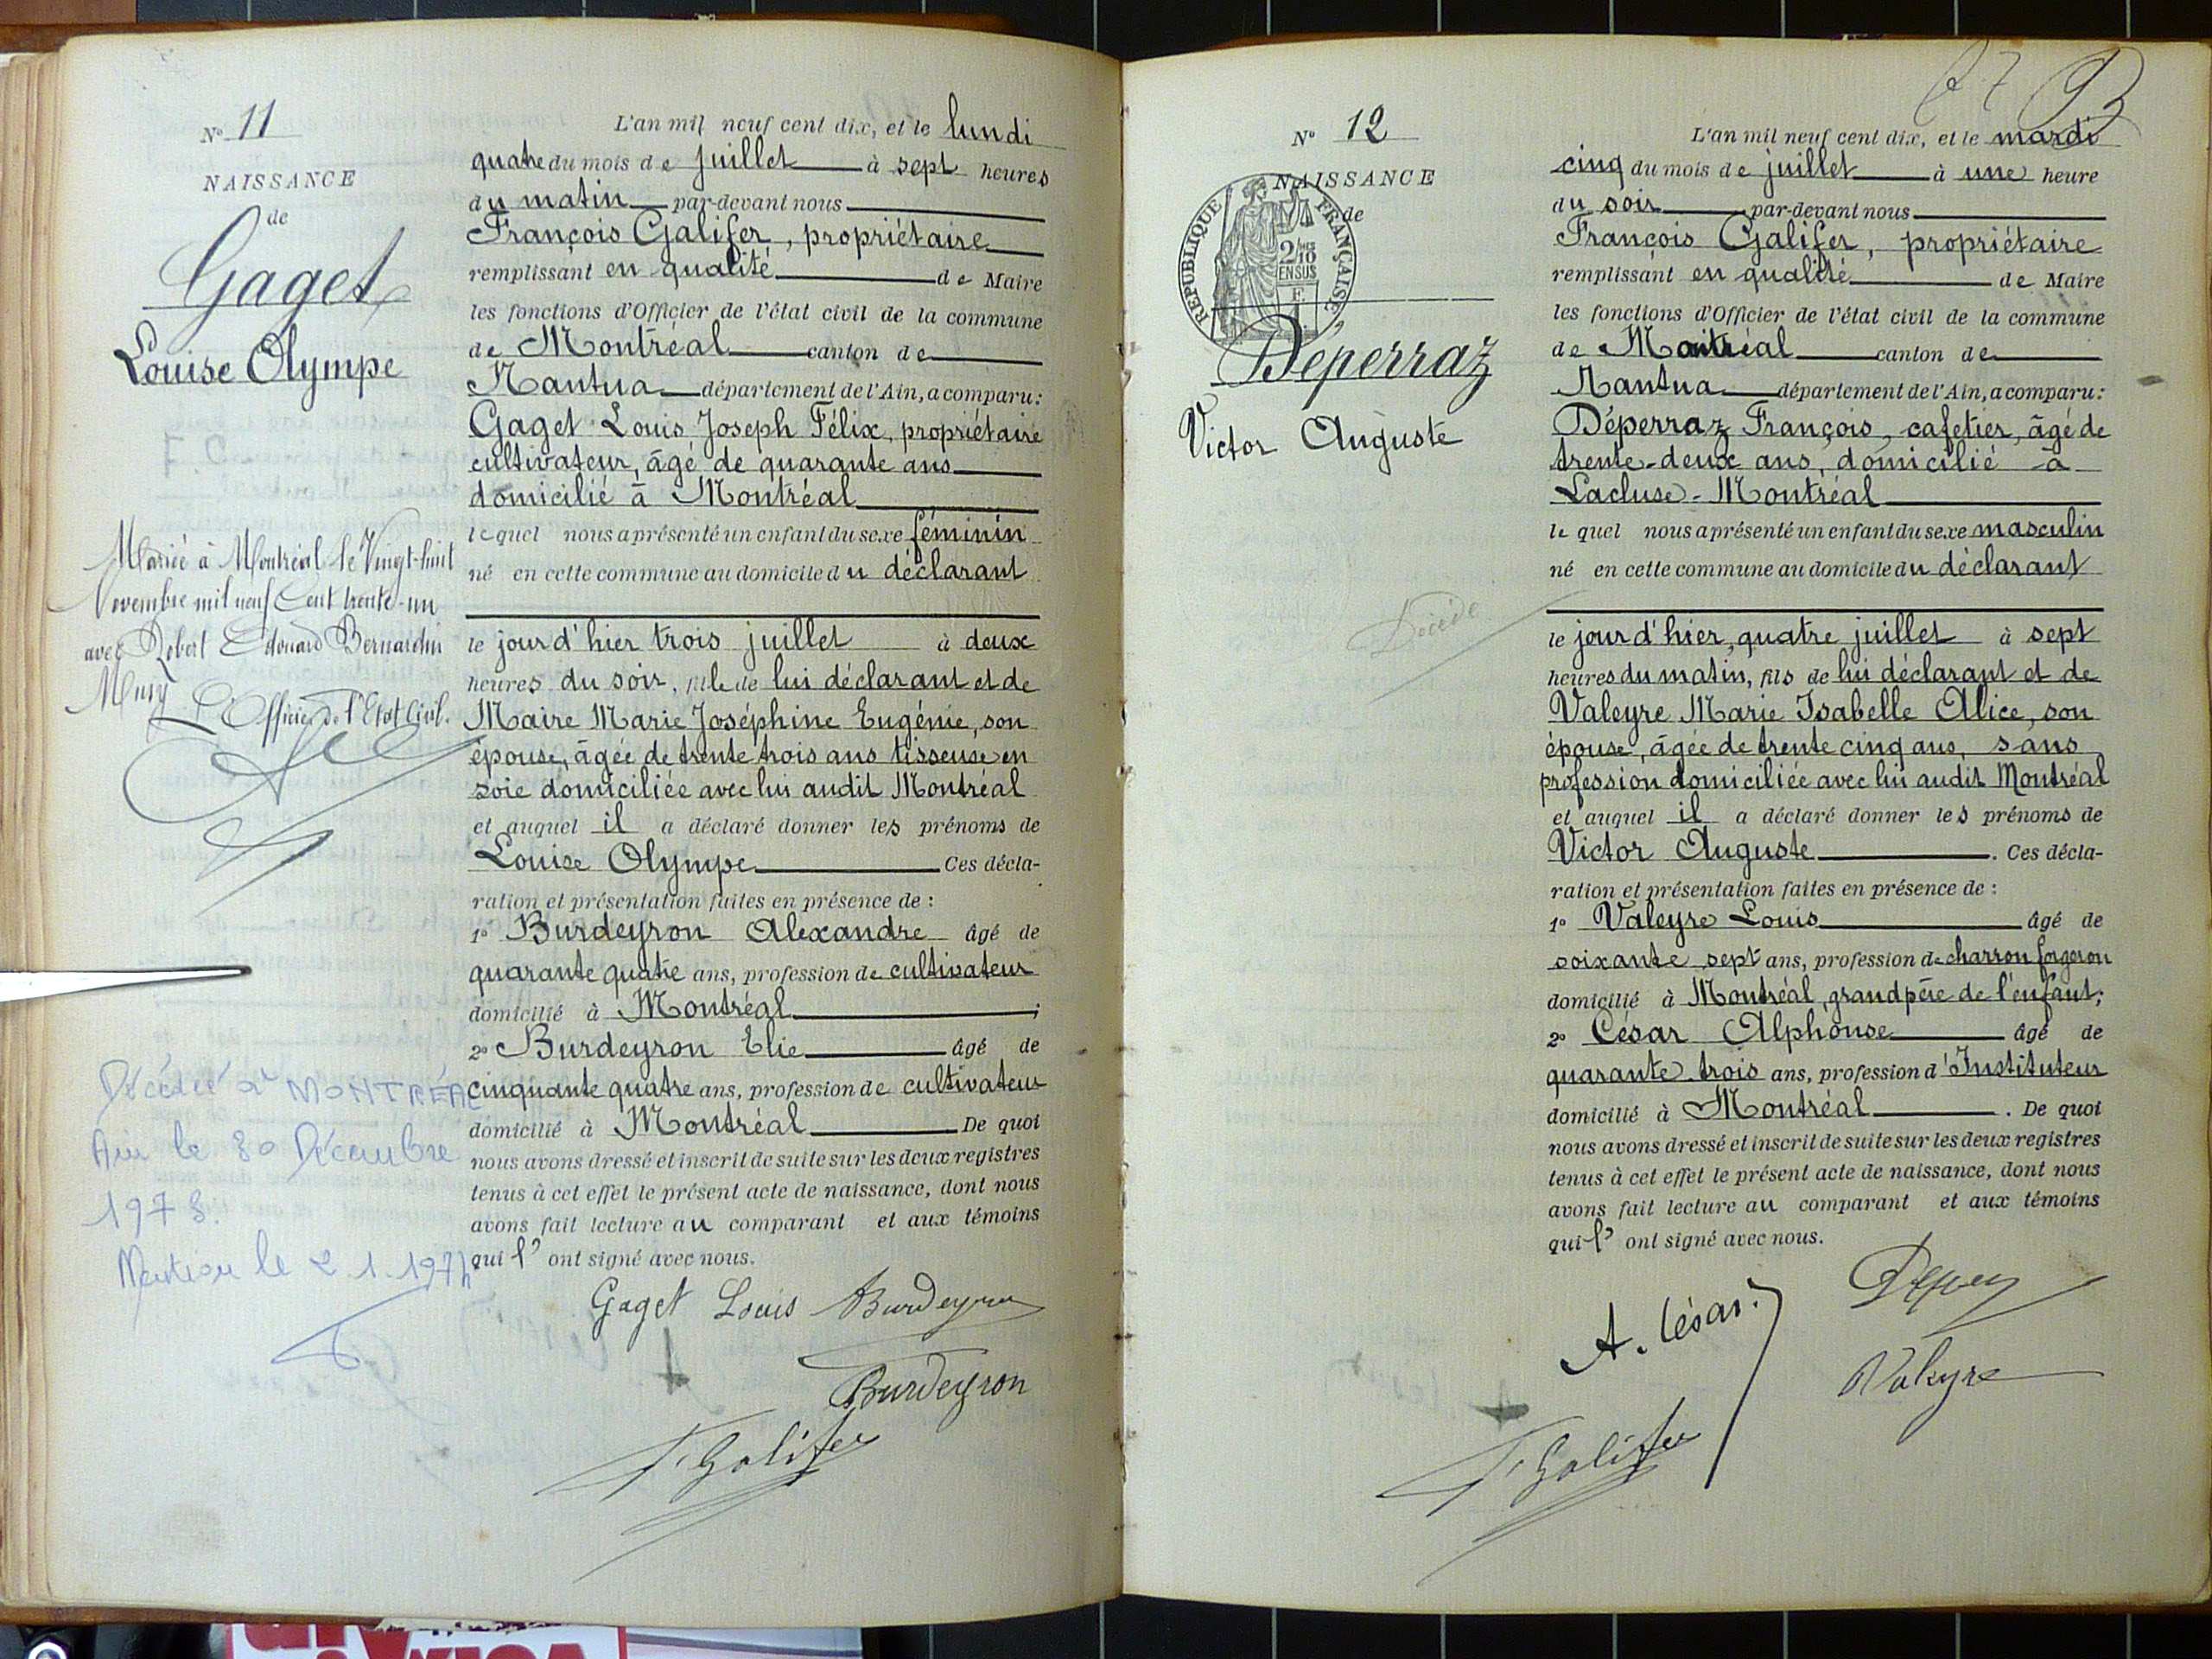 N° 11
NAISSANCE
de
Gaget
Louise Olympe
Mariée à Montréal le Vingt-huit
Novembre mil neuf Cent trente-un
avec Robert Edouard Bernardin
L'Officier de l'Etat Civil.
Décédée à MONTRÉAL
Ain le 30 Décembre
1973.
Mention le 2.1.1974
L'an mil neuf cent dix, et le lundi
quatre du mois de juillet à sept heures
du matin par-devant nous
François Galifer, propriétaire
remplissant en qualité de Maire
les fonctions d'Officier de l'état civil de la commune
de Montréal canton de
Nantua département de l'Ain, a comparu:
Gaget Louis Joseph Félix, propriétaire
cultivateur, âgé de quarante ans
domicilié à Montréal
lequel nous a présenté un enfant du sexe féminin
né en cette commune au domicile du déclarant
le jour d'hier trois juillet à deux
heures du soir, fille de lui déclarant et de
Maire Marie Joséphine Eugénie, son
épouse, âgée de trente trois ans tisseuse en
soie domiciliée avec lui audit Montréal
et auquel il a déclaré donner les prénoms de
Louise Olympe Ces décla-
ration et présentation faites en présence de :
1° Burdeyron Alexandre âgé de
quarante quatre ans, profession de cultivateur
domicilié à Montréal ;
2° Burdeyron Elie âgé de
cinquante quatre ans, profession de cultivateur
domicilié à Montréal De quoi
nous avons dressé et inscrit de suite sur les deux registres
tenus à cet effet le présent acte de naissance, dont nous
avons fait lecture au comparant et aux témoins
qui l' ont signé avec nous.
Gaget Louis Burdeyron
Burdeyron
F. Galifer
N° 12
NAISSANCE
de
RÉPUBLIQUE FRANÇAISE
2/10
EN SUS
Déperraz
Victor Auguste
Décédé
L'an mil neuf cent dix, et le mardi
cinq du mois de juillet à une heure
du soir par-devant nous
François Galifer, propriétaire
remplissant en qualité de Maire
les fonctions d'Officier de l'état civil de la commune
de Montréal canton de
Nantua département de l'Ain, a comparu:
Déperraz François, cafetier, âgé de
trente-deux ans, domicilié à
Lacluse-Montréal
le quel nous a présenté un enfant du sexe masculin
né en cette commune au domicile du déclarant
le jour d'hier, quatre juillet à sept
heures du matin, fils de lui déclarant et de
Valeyre Marie Isabelle Alice, son
épouse, âgée de trente cinq ans, sans
profession domiciliée avec lui audit Montréal
et auquel il a déclaré donner les prénoms de
Victor Auguste . Ces décla-
ration et présentation faites en présence de :
1° Valeyre Louis âgé de
soixante sept ans, profession de charron forgeron
domicilié à Montréal, grand père de l'enfant;
2° César Alphonse âgé de
quarante trois ans, profession d'Instituteur
domicilié à Montréal . De quoi
nous avons dressé et inscrit de suite sur les deux registres
tenus à cet effet le présent acte de naissance, dont nous
avons fait lecture au comparant et aux témoins
qui l' ont signé avec nous.
A. César.
Valeyre
F. Galifer